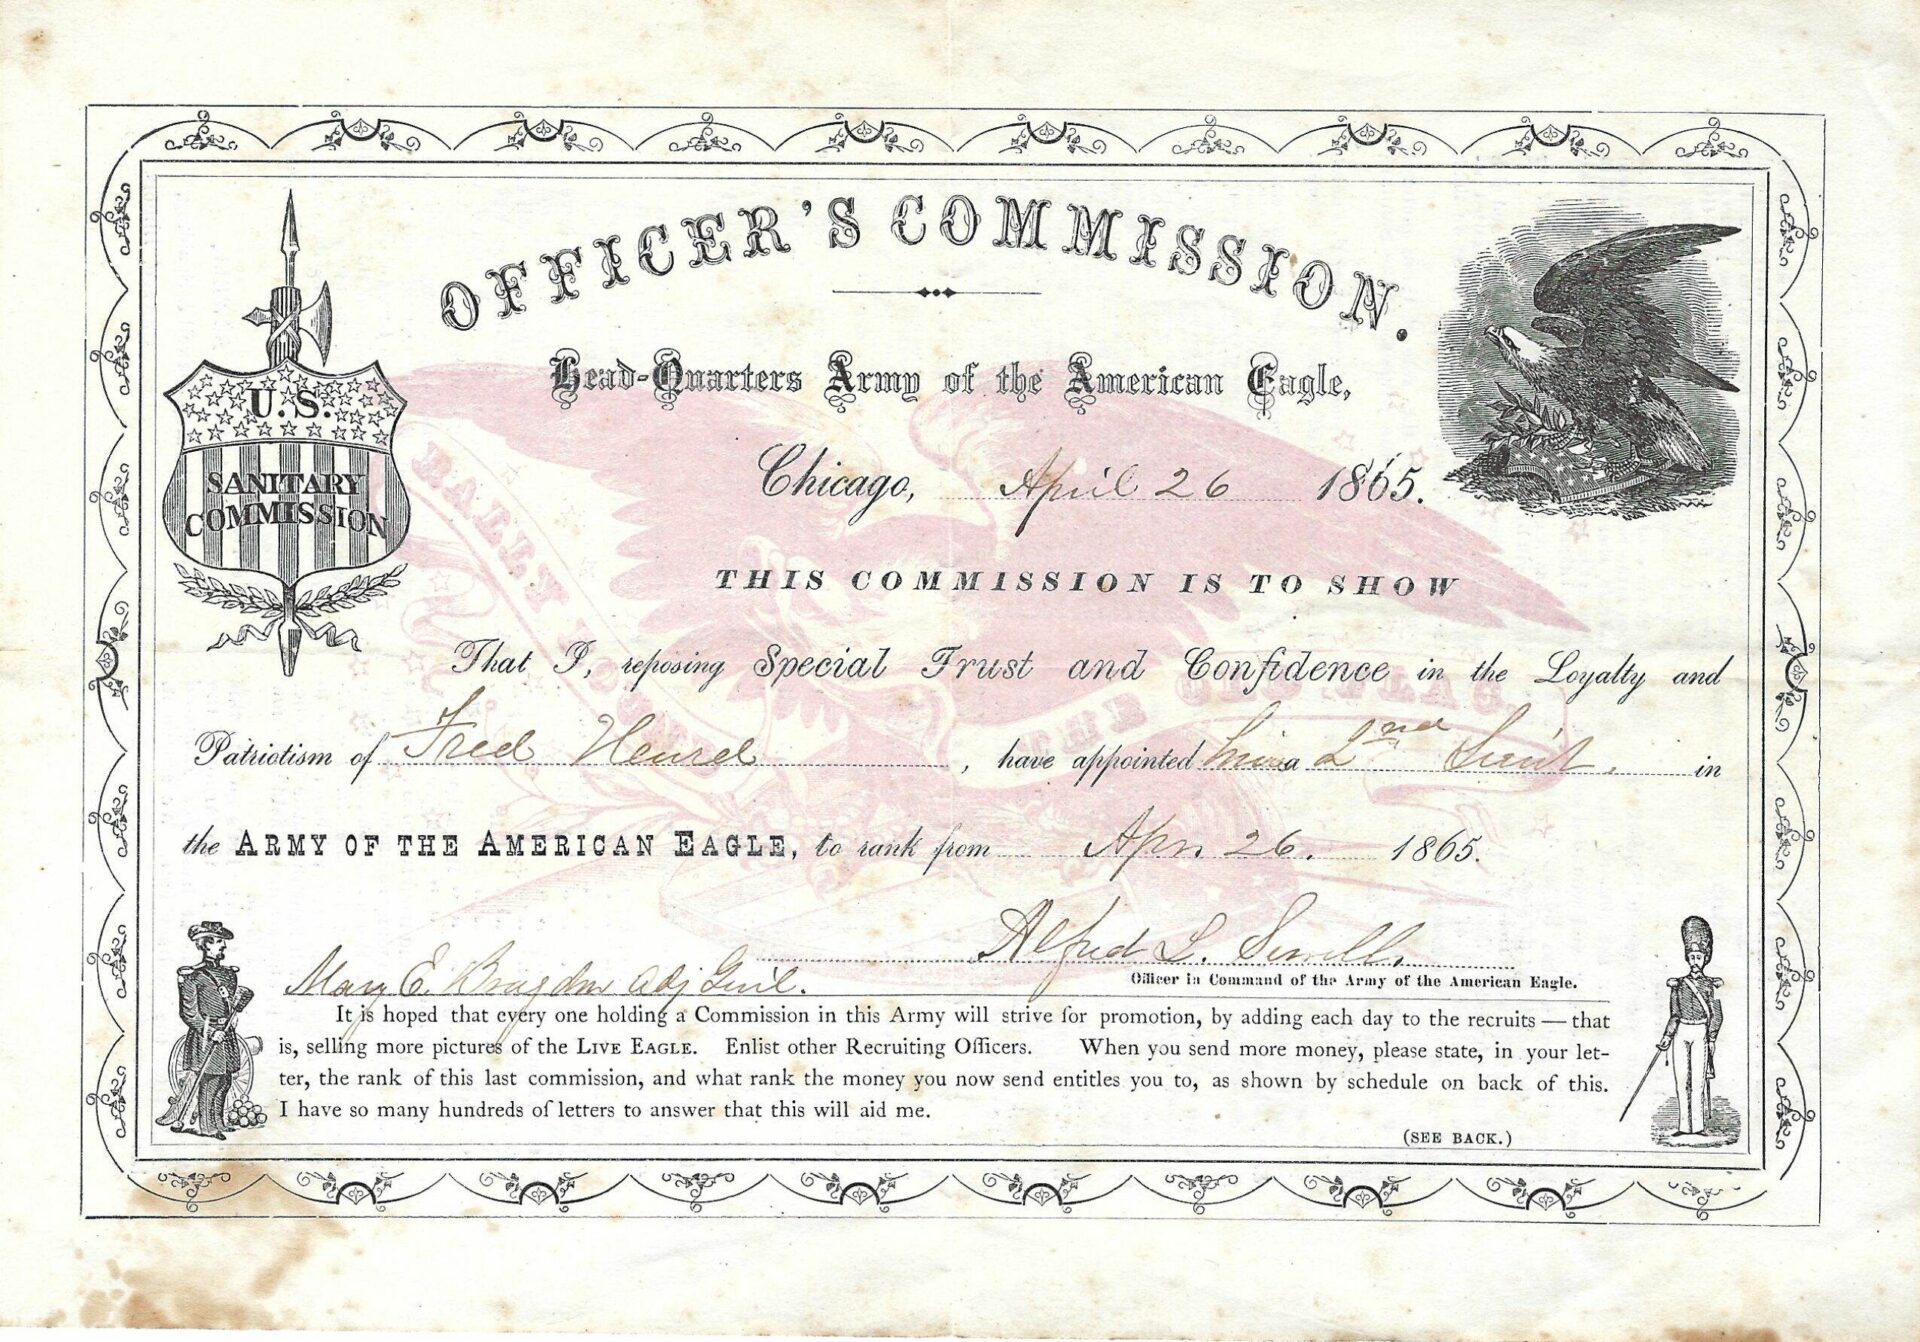 OFFICER'S COMMISSION.
U.S.
SANITARY
COMMISSION
Head-Quarters Army of the American Eagle,
Chicago, April 26 1865.
THIS COMMISSION IS TO SHOW
That I, reposing Special Trust and Confidence in the Loyalty and
Patriotism of Fred Heurd, have appointed him a 2nd Lieut. in
the ARMY OF THE AMERICAN EAGLE, to rank from Apr. 26. 1865.
Alfred L. Sewell.
Officer in Command of the Army of the American Eagle.
Mary E. Bragdon Adj Genl.
It is hoped that every one holding a Commission in this Army will strive for promotion, by adding each day to the recruits — that
is, selling more pictures of the LIVE EAGLE. Enlist other Recruiting Officers. When you send more money, please state, in your let-
ter, the rank of this last commission, and what rank the money you now send entitles you to, as shown by schedule on back of this.
I have so many hundreds of letters to answer that this will aid me.
(SEE BACK.)
RALLY ROUND
THE